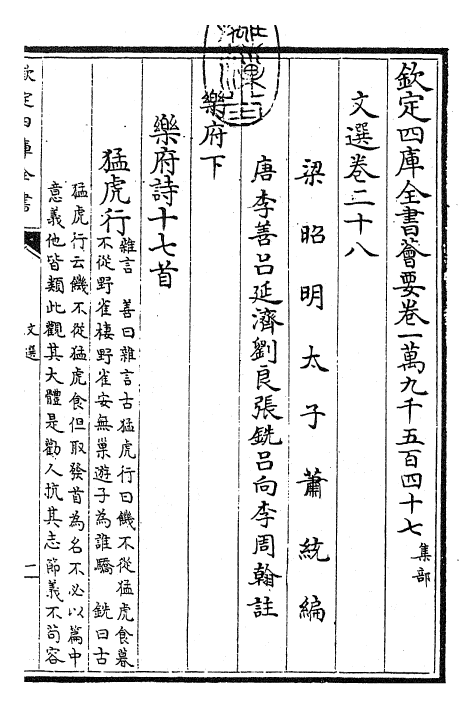 欽定四庫全書薈要卷一萬九千五百四十七 集部
文選卷二十八
梁昭明太子蕭統編
唐李善呂延濟劉良張銑呂向李周翰註
樂府下
樂府詩十七首
猛虎行 雜言 善曰雜言古猛虎行曰饑不從猛虎食暮
不從野雀棲野雀安無巢遊子為誰驕 銑曰古
猛虎行云饑不從猛虎食但取發首為名不必以篇中
意義他皆類此觀其大體是勸人抗其志節義不苟容
欽定四庫全書
文選
一